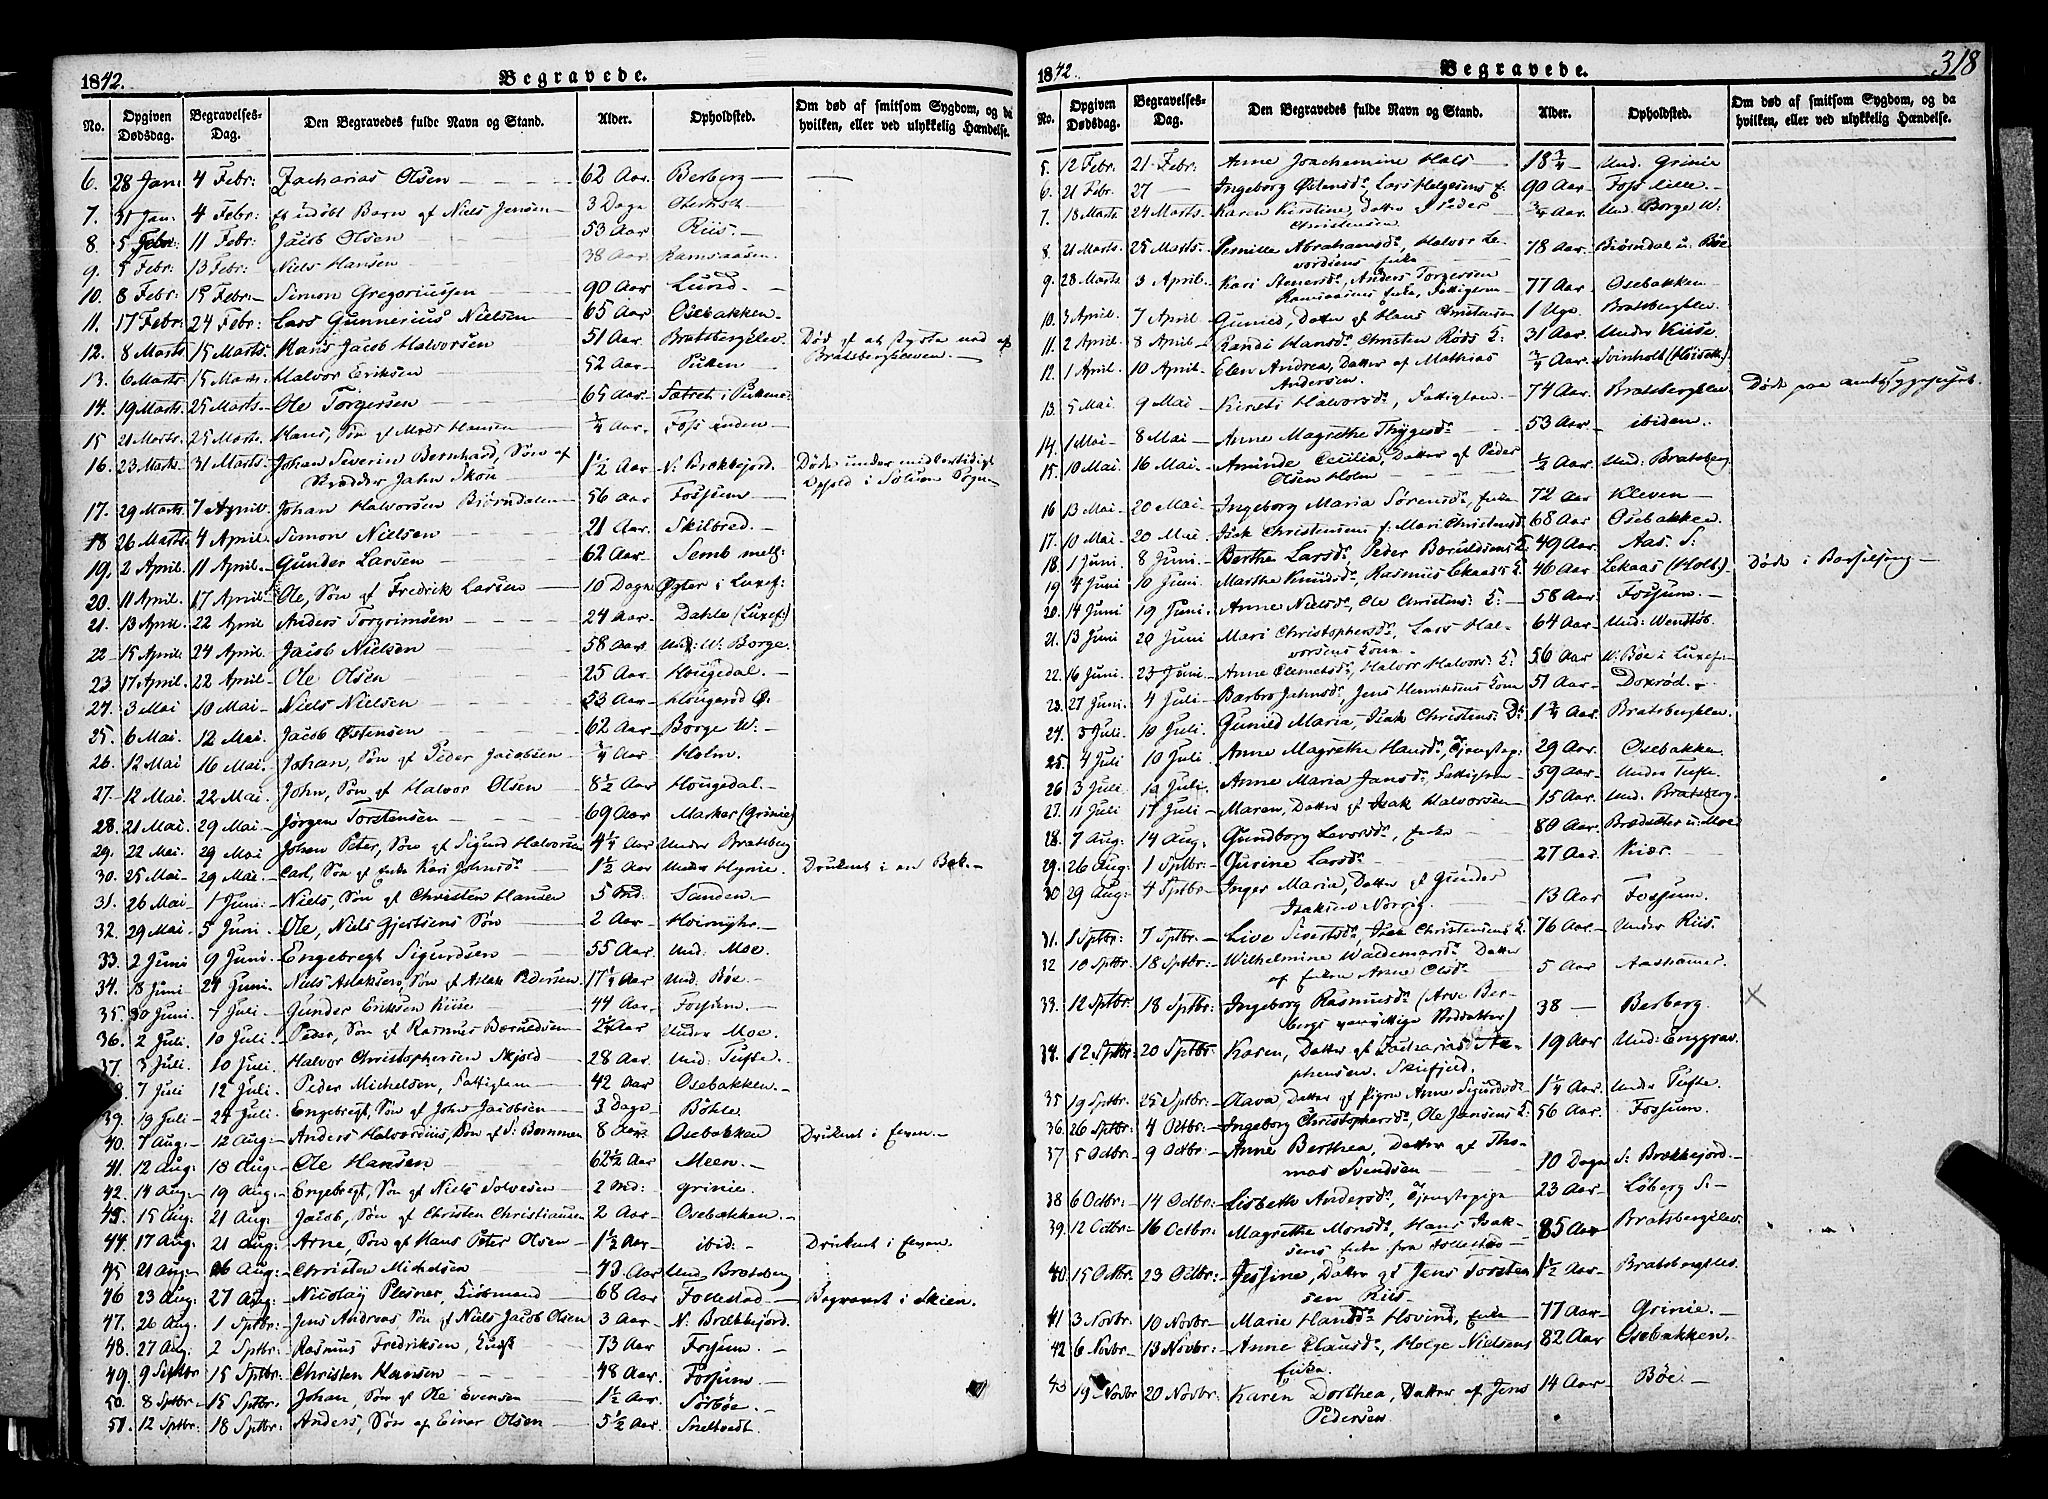 1842. Begravede.
No. Opgiven Dødsdag. Begravelses-Dag. Den Begravedes fulde Navn og Stand. Alder. Opholdsted. Om død af smitsom Sygdom, og da hvilken, eller ved ulykkelig Hændelse.
6. 28 Jan: 4 Febr: Zacharias Olsen 62 Aar. Berberg
7. 31 Jan: 4 Febr: et udøbt Barn af Niels Jensen 3 Dage
8. 5 Febr: 11 Febr: Jacob Olsen 53 Aar Riis.
9. 5 Febr: 13 Febr: Niels Hansen 38 Aar Ramsaasen.
10. 8 Febr: 19 Febr: Simon Gregoriussen 90 Aar Lund.
11. 17 Febr: 24 Febr: Lars Gunnerius Nielsen 65 Aar Osebakken.
12. 8 Marts 15 Marts. Hans Jacob Halvorsen 51 Aar. Bratsbergklev. Død af at styrte ned af
Bratsbergkleven.
13. 6 Marts 15 Marts. Halvor Eriksen 52 Aar Puken
14. 19 Marts. 25 Marts. Ole Torgersen 65 Aar. Sætret i Pukene
15 21 Marts. 25 Marts. Hans, Søn af Mads Hansen ¾ Aar. Foss enden
16. 23 Marts. 31 Marts. Johan Severin Bernhard, Søn af
Skrædder Jahn Skou 1½ Aar N: Brækkejord. Døde under midlertidigt
Ophold i Solum Sogn
17. 29 Marts. 7 April. Johan Halvorsen Bjørndalen 56 Aar Fossum
18 26 Marts. 4 April. Simon Nielsen 21 Aar. Skilbred.
19. 2 April. 11 April. Gunder Larsen 62 Aar. Semb mell:
20. 11 April. 17 April. Ole, Søn af Fredrik Larsen 10 Dage Øgter i Luxef:
21. 13 April. 22 April Anders Torgrimsen 24 Aar. Dahle (Luxef:)
22 15 April. 24 April. Jacob Nielsen 58 Aar Und: W: Borge.
23 17 April. 22 April. Ole Olsen 25 Aar. Hougedal.
24. 3 Mai 10 Mai Niels Nielsen 53 Aar Hougerød Ø:
25. 6 Mai. 12 Mai. Jacob Østensen 62 Aar Borge W:
26. 12 Mai 16 Mai. Johan, Søn af Peder Jacobsen ¾ Aar Holm
27. 12 Mai. 22 Mai. John, Søn af Halvor Olsen 8½ Aar Hougedal.
28. 21 Mai. 29 Mai Jørgen Torstensen 69 Aar Marker (Grinie)
29. 22 Mai. 29 Mai Johan Peter, Søn af Sigurd Halvorsen 4¼ Aar Under Bratsberg
30. 25 Mai 29 Mai. Carl, Søn af Enke Kari Johnsd: 1½ Aar Under Hynie. Druknet i en Bæk.
31. 26 Mai 1 Juni: Niels, Søn af Christen Hansen 5 Md. Sanden.
32. 29 Mai 5 Juni. Ole, Niels Gjertsens Søn 2 Aar Høimyhr.
33. 2 Juni 9 Juni. Engebregt Sigurdsen 55 Aar. Und: Moe.
34. 18 Juni 24 Juni. Niels Aslaksen, Søn af Aslak Pedersen. 17¼ Aar Und. Bøe.
35. 30 Juni. 7 Juli Gunder Eriksen Kiise 44 Aar. Fossum.
36. 2 Juli. 10 Juli. Peder, Søn af Rasmus Bæruldsen 2¼ Aar Under Moe
37. 3 Juli. 10 Juli. Halvor Christophersen Skjold 28 Aar. Und: Tufte.
7 Juli 12 Juli. Peder Michelsen, Fattiglem 42 Aar Osebakken.
39. 19 Juli 24 Juli. Engebregt, Søn af John Jacobsen 3 Dage Bøhle.
40. 7 Aug: 12 Aug: Anders Halvordius, Søn af S: Bommen 8 Aar. Osebakken Druknet i Elven.
41. 12 Aug: 18 Aug: Ole Hansen 62½ Aar Meen.
42. 14 Aug: 19 Aug: Engebregt, Søn af Niels Solvesen 2 Md: Grinie.
43. 15 Aug: 21 Aug: Jacob, Søn af Christen Christiansen 2 Aar Osebakken.
44. 17 Aug: 21 Aug: Arne, Søn af Hans Peter Olsen 1½ Aar ibid: Druknet i Elven.
45 21 Aug: 26 Aug: Christen Michelsen 43 Aar Und Bratsberg
46 23 Aug: 27 Aug. Nicolay Plesner, Kiøbmand 68 Aar Follestad Begravet i Skien.
47. 26 Aug. 1 Sptbr: Jens Andreas, Søn af Niels Jacob Olsen 3 Aar N: Brækkejord.
48. 27 Aug: 2 Sptbr: Rasmus Fredriksen, 73 Aar Fossum.
49. 9 Septbr 15 Sptbr: Christen Hansen 48 Aar. Fossum.
50. 8 Sptbr 15 Sptbr: Johan, Søn af Ole Evensen 1½ Aar Sørbøe.
51. 12 Sptbr: 18 Sptbr: Anders, Søn af Einer Olsen 5½ Aar Sneltvedt.
1842. Begravede. 318
No. Opgiven Dødsdag. Begravelses-Dag. Den Begravedes fulde Navn og Stand. Alder. Opholdsted. Om død af smitsom Sygdom, og da hvilken, eller ved ulykkelig Hændelse.
5. 12 Febr: 21. Febr: Anne Joachemine Hals 18¾ Und. Grinie
6. 21 Febr: 27 Ingeborg Østensd:, Lars Helgesens E: 90 Aar Foss lille.
7. 18 Marts 24 Marts. Karen Kirstine, Datter af Peder
Christensen ¾ Aar. Und Borge W:
8. 21 Marts. 25 Marts. Pernille Abrahamsd:, Halvor Le-
vordsens Enke 78 Aar Biørndal u: Bøe
9. 28 Marts 3 April. Kari Stenersd:, Anders Torgersen
Ramsaasens Enke, Fattiglem 77 Aar Osebakken
10. 3 April. 7 April Gunild, Datter af Hans Christensen 1 Uge Bratsbergklev.
11. 2 April. 8 April. Randi Hansd:, Christen Røds K: 31 Aar. Under Kiise.
12. 1 April. 10 April. Elen Andrea, Datter af Mathias
Andersen. ¾ Aar. Svinholt (Høiseth)
13. 5 Mai. 9 Mai Kirsti Halvorsd:, Fattiglem 74 Aar. Bratsbergklev Døde paa Amtssygehuset.
14. 1 Mai 8 Mai Anne Magrethe Thygesd: 53 Aar. ibidem.
15. 10 Mai. 16 Mai. Aminde Cecilia, Datter af Peder
Olsen Holm ½ Aar. Und: Bratsberg
16 13 Mai. 20 Mai. Ingeborg Maria Sørensd:, Enke 72 Aar Kleven
17. 10 Mai. 20 Mai. Isak Christensens E: Mari Christensd: 68 Aar. Osebakken.
18. 1 Juni: 8 Juni. Berthe Larsd:, Peder Bæruldsens K: 49 Aar. Aas. S:
19 4 Juni 10 Juni. Marthe Knudsd:, Rasmus Lekaas's K: 46 Aar. Lekaas (Holt). Døde i Barselseng
20. 14 Juni 19 Juni. Anne Nielsd:, Ole Christens: K: 58 Aar. Fossum.
21. 13 Juni 20 Juni Mari Christophersd:, Lars Hal-
vorsens Kone. 64 Aar. Und: Wendtøb.
22. 16 Juni. 23 Juni. Anne Clemetsd:, Halvor Halvors: K: 56 Aar W: Bøe i Luxef:
23. 27 Juni. 4 Juli. Barbro Johnsd:, Jens Henriksens Kone 51 Aar Doxrød.
24. 5 Juli. 10 Juli. Gunild Maria, Isak Christens: D: 1¾ Aar. Bratsbergklev
25. 4 Juli 10 Juli. Anne Magrethe Hansd:, Tjenestep: 29 Aar. Osebakken
26 3 Juli. 12 Juli. Anne Maria Jansd:, Fattiglem 59 Aar. Under Tufte.
27. 11 Juli 17 Juli Maren, Datter af Isak Halvorsen 15 Aar. Und. Bratsberg.
28. 7 Aug: 14 Aug: Gundborg Levorsd:, Enke 80 Aar. Brædalter u: Moe
29. 26 Aug: 1 Sptbr: Gurine Larsd: 27 Aar. Kiær.
30 29 Aug: 4 Sptbr: Inger Maria, Datter af Gunder
Isaksen Norvig. 13 Aar Fossum.
31. 1 Sptbr: 7 Sptbr: Live Sivertsd:, Isak Christensens K: 76 Aar Under Riis.
32 10 Sptbr. 18 Sptbr: Wilhelmine Waldemarsd: Datter
af Enken Anne Olsd: 5 Aar
33. 12 Sptbr. 18 Sptbr: Ingeborg Rasmusd: (Arve Ber-
bergs vanvittige Steddatter) 38 Berberg. X
34. 12 Sptbr 20 Sptbr: Karen, Datter af Zacharias
Ste-
phensen. Skifjeld. 19 Aar Und: Enggrav
35 19 Sptbr: 25 Sptbr: Aava, Datter af Pigen Anne Sigurdsd: 1¼ Aar. Under Tufte.
36. 26 Sptbr: 4 Octbr: Ingeborg Christophersd:, Ole Jansens K: 56 Aar. Fossum.
37 5 Octbr: 9 Octbr: Anne Berthea, Datter af Tho-
mas Svendsen 10 Dage S: Brækkejord.
38 6 Octbr: 14 Octbr: Lisbeth Andersd:, Tjenestepige 23 Aar Løberg S:
39. 12 Octbr: 16 Octbr: Magrethe Monsd:, Hans Isak-
sens Enke fra Follestad 85 Aar Bratsbergklev.
40. 15 Octbr: 23 Octbr: Jessine, Datter af Jens Torsten
sen Riis 1½ Aar Bratsbergklev.
41 3 Novbr: 10 Novbr Marie Hansd: Hovind, Enke 77 Aar Grinie.
42 6 Novbr: 13 Novbr: Anne Clausd:, Helge Nielsens
Enke. 82 Aar Osebakken.
43 19 Novbr 20 Novbr. Karen Dorthea, Datter af Jens
Pedersen 14 Aar Bøe.